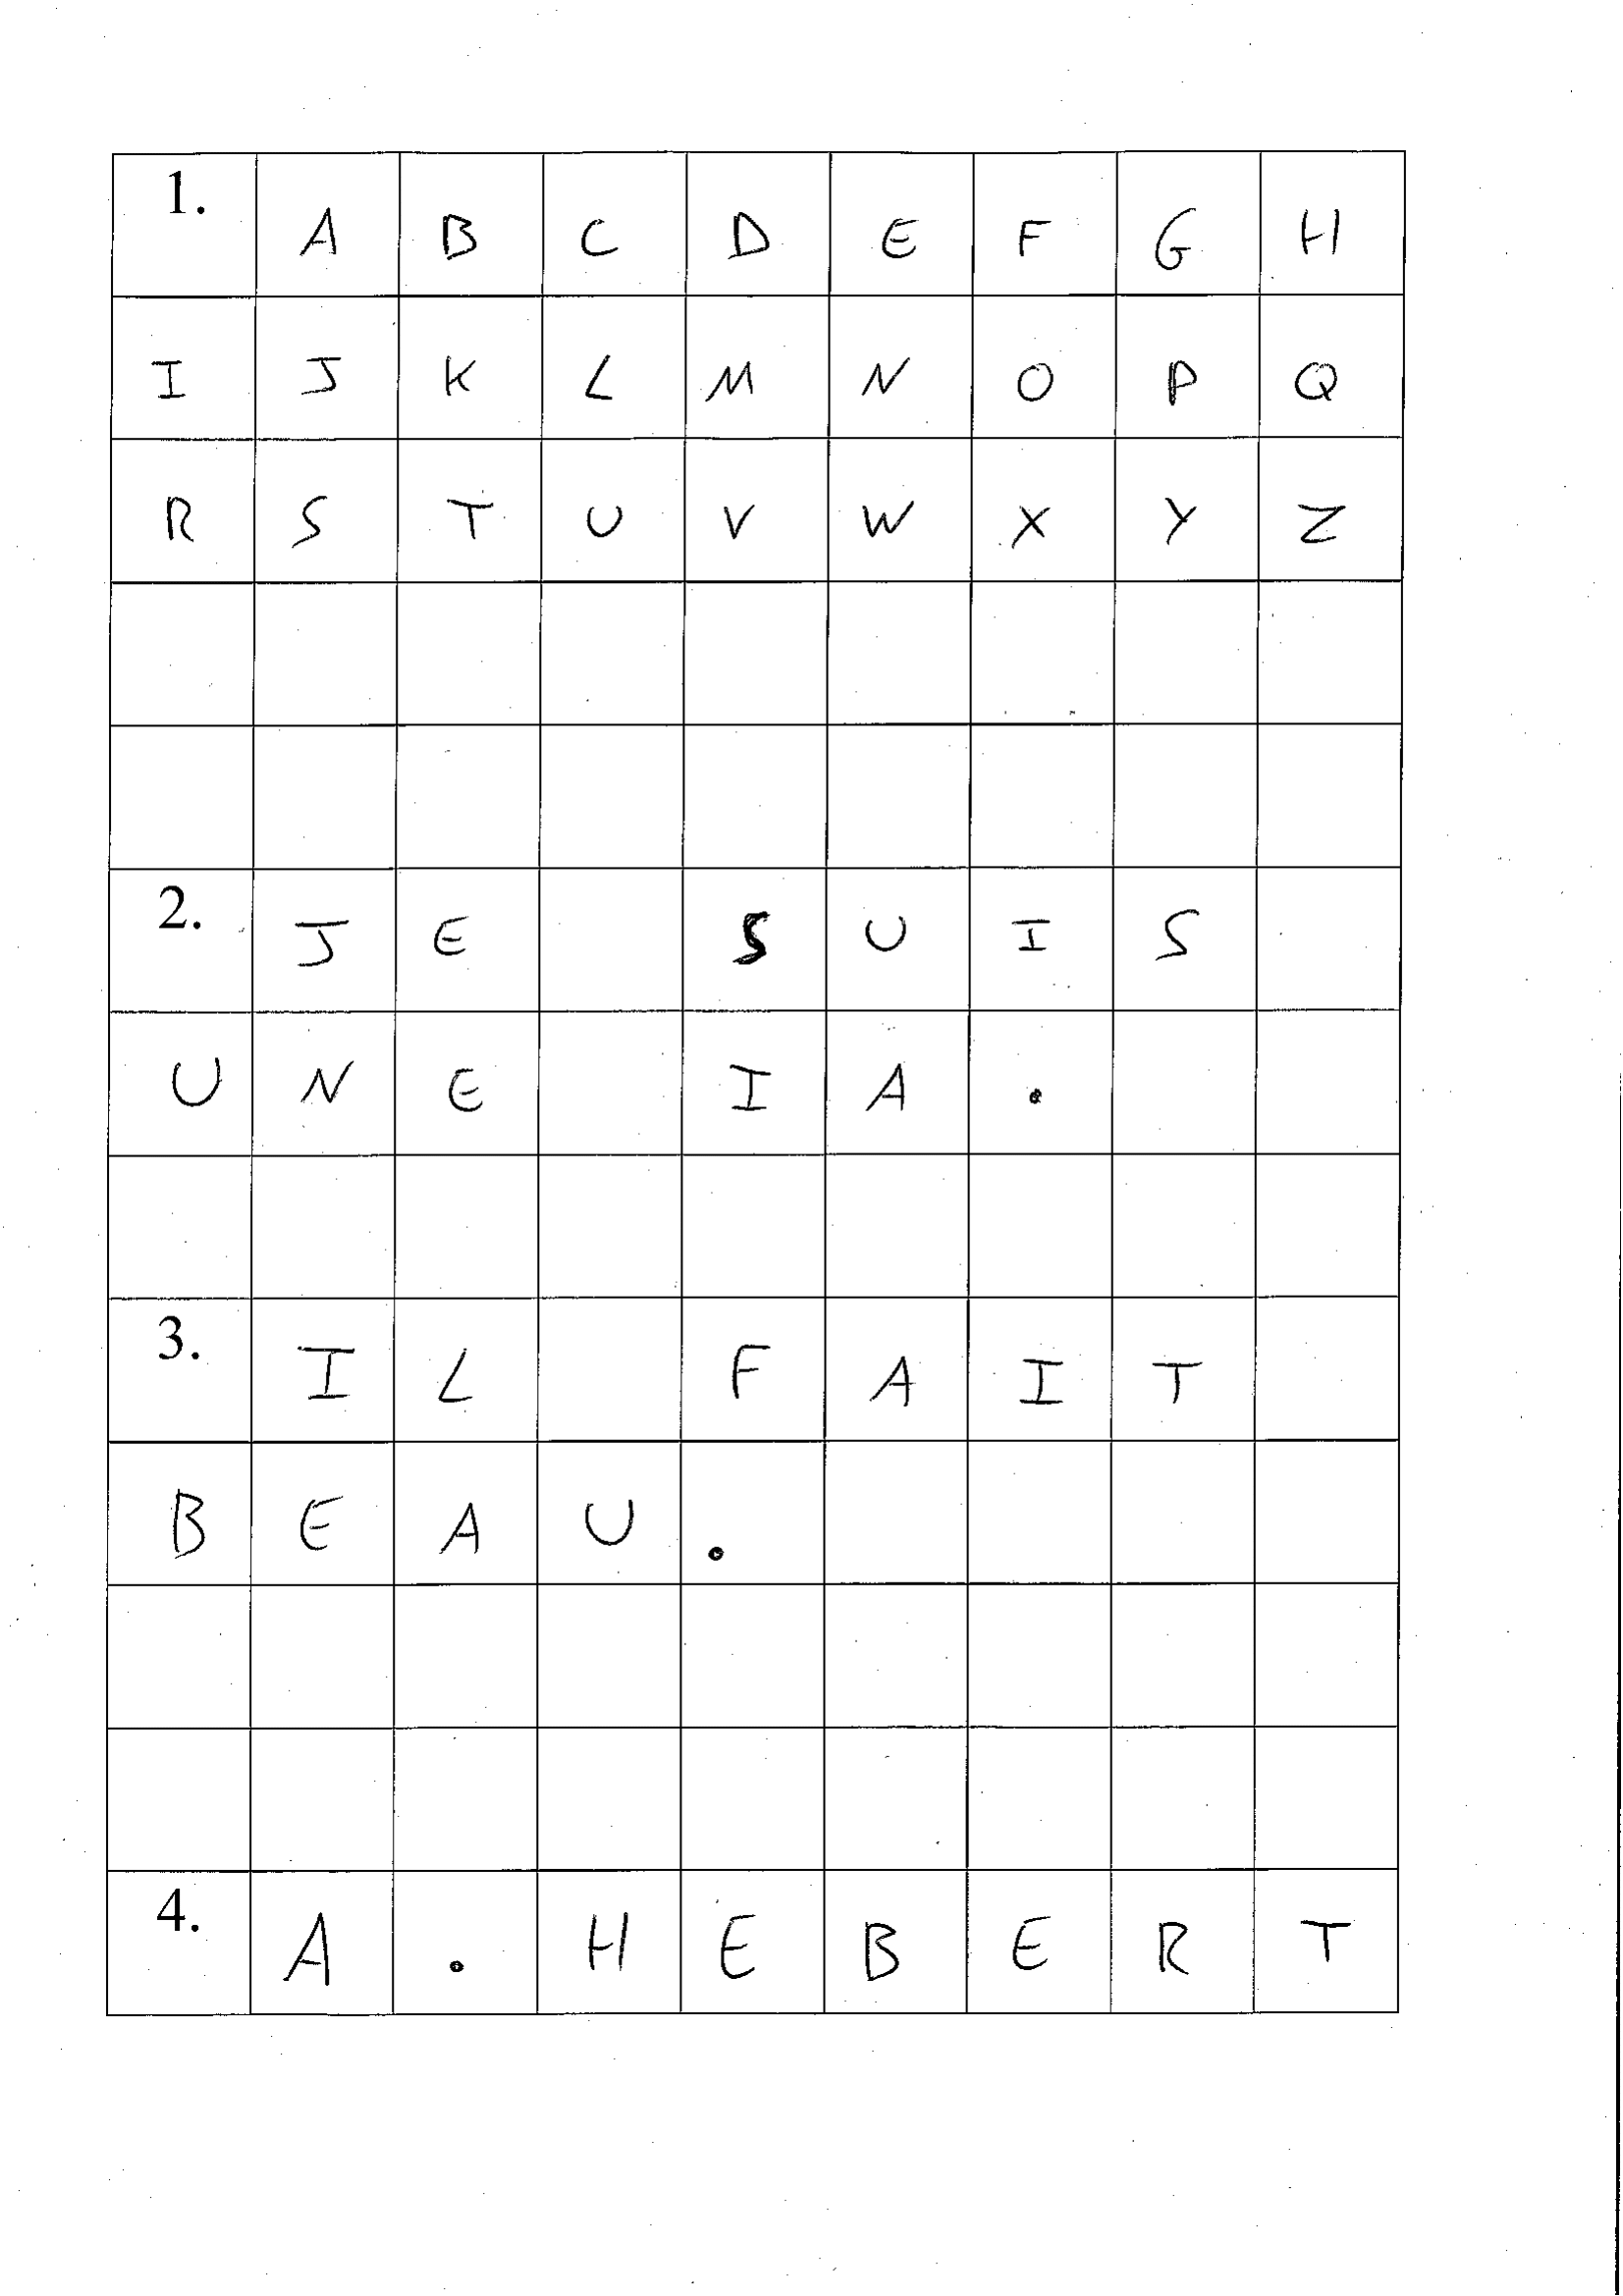 1. A B C D E F G H
I J K L M N O P Q
R S T U V W X Y Z
2. J E S U I S
U N E I A .
3. I L F A I T
B E A U .
4. A . H E B E R T